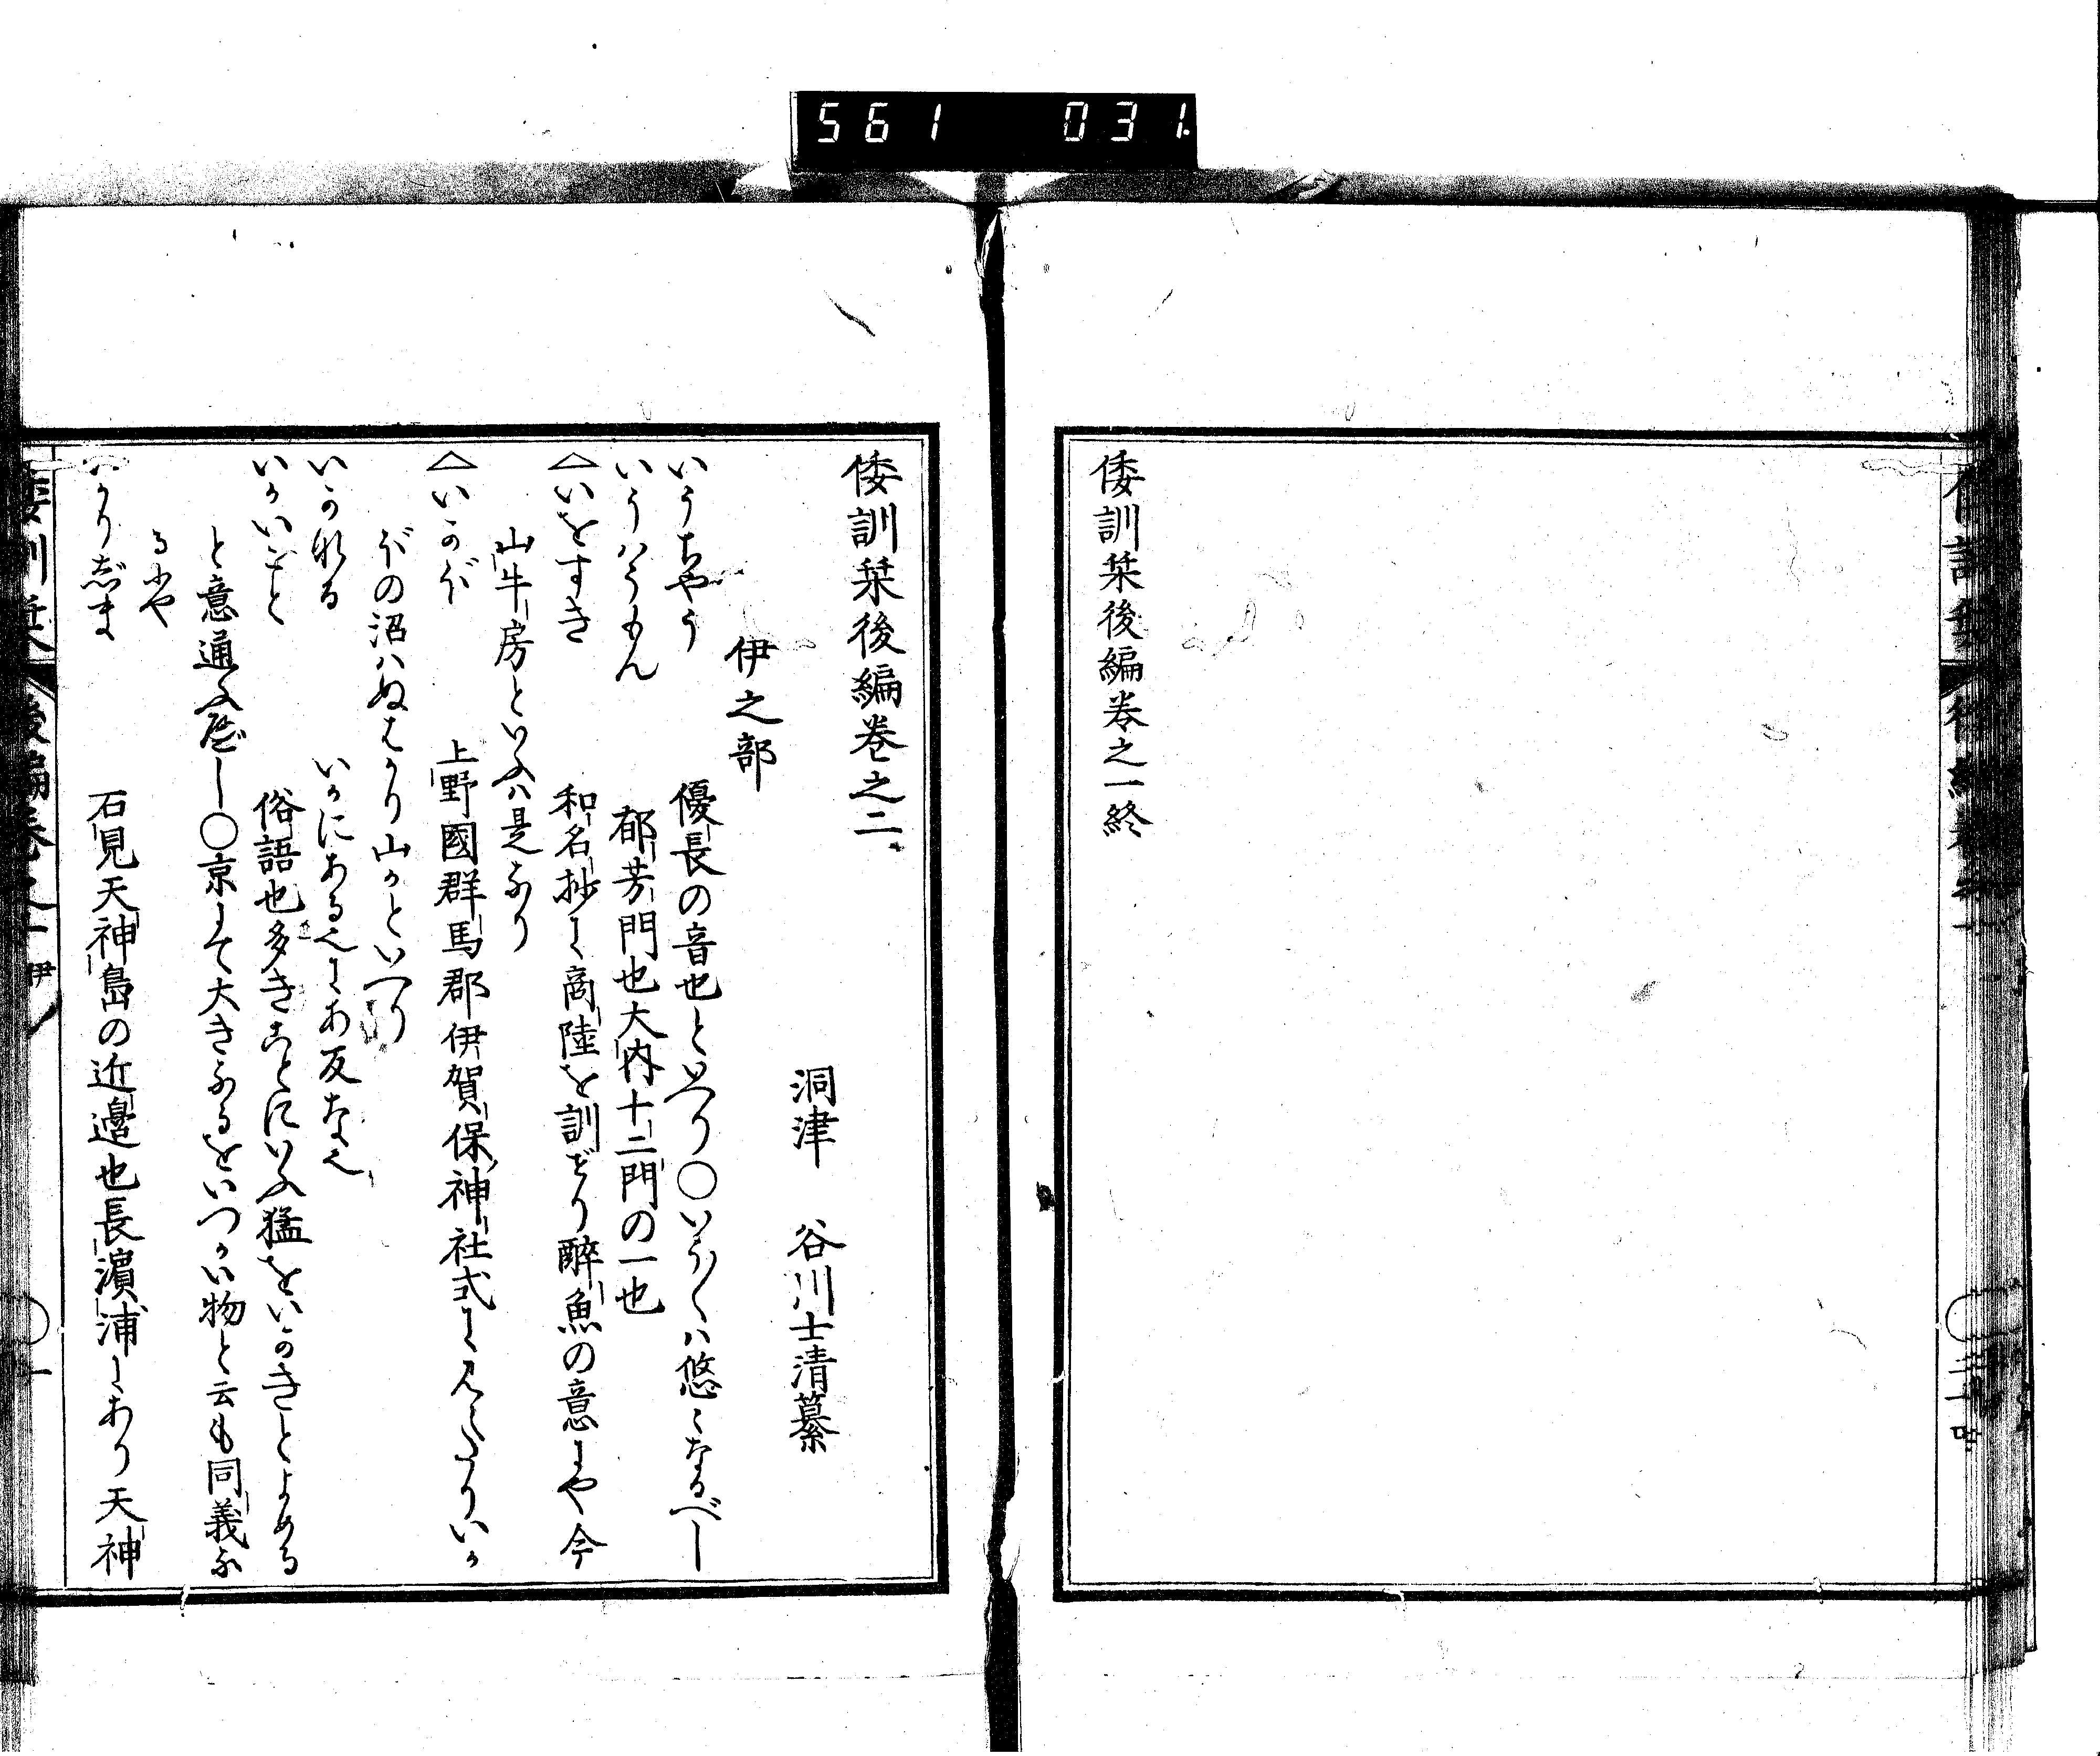 561 031
倭訓栞後編巻之一終
倭訓栞後編巻之二
洞津 谷川士清纂
伊之部
いうちやう 優長の音也といへり○いう〳〵ハ悠々なるべし
いうハうもん 郁芳門也大内十二門の一也
△いをすき 和名抄に商陸を訓ぜり酔魚の意にや今
山牛房といふハ是なり
△いかぼ 上野國群馬郡伊賀保神社式に見えたりいか
ほの沼ハぬまより山かといへり
いかなる いかにある也にあ反な也
いかいこと 俗語也多きことにいふ猛をいかきとよめる
と意通ふ歴し○京にて大きなるをいつかい物と云も同義な
るにや
いかりじま 石見天神島の近邊也長濵浦にあり天神
倭訓栞 後編巻之二 伊 ノ 一